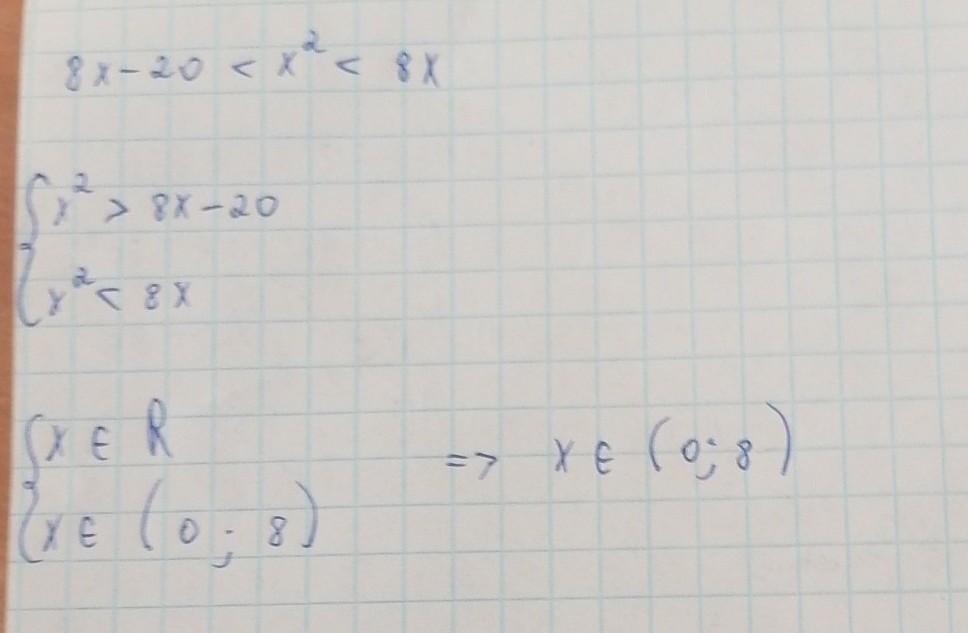 8x - 20 < x² < 8x
{ x² > 8x - 20
{ x² < 8x
{ x ∈ R => x ∈ (0; 8)
{ x ∈ (0; 8)